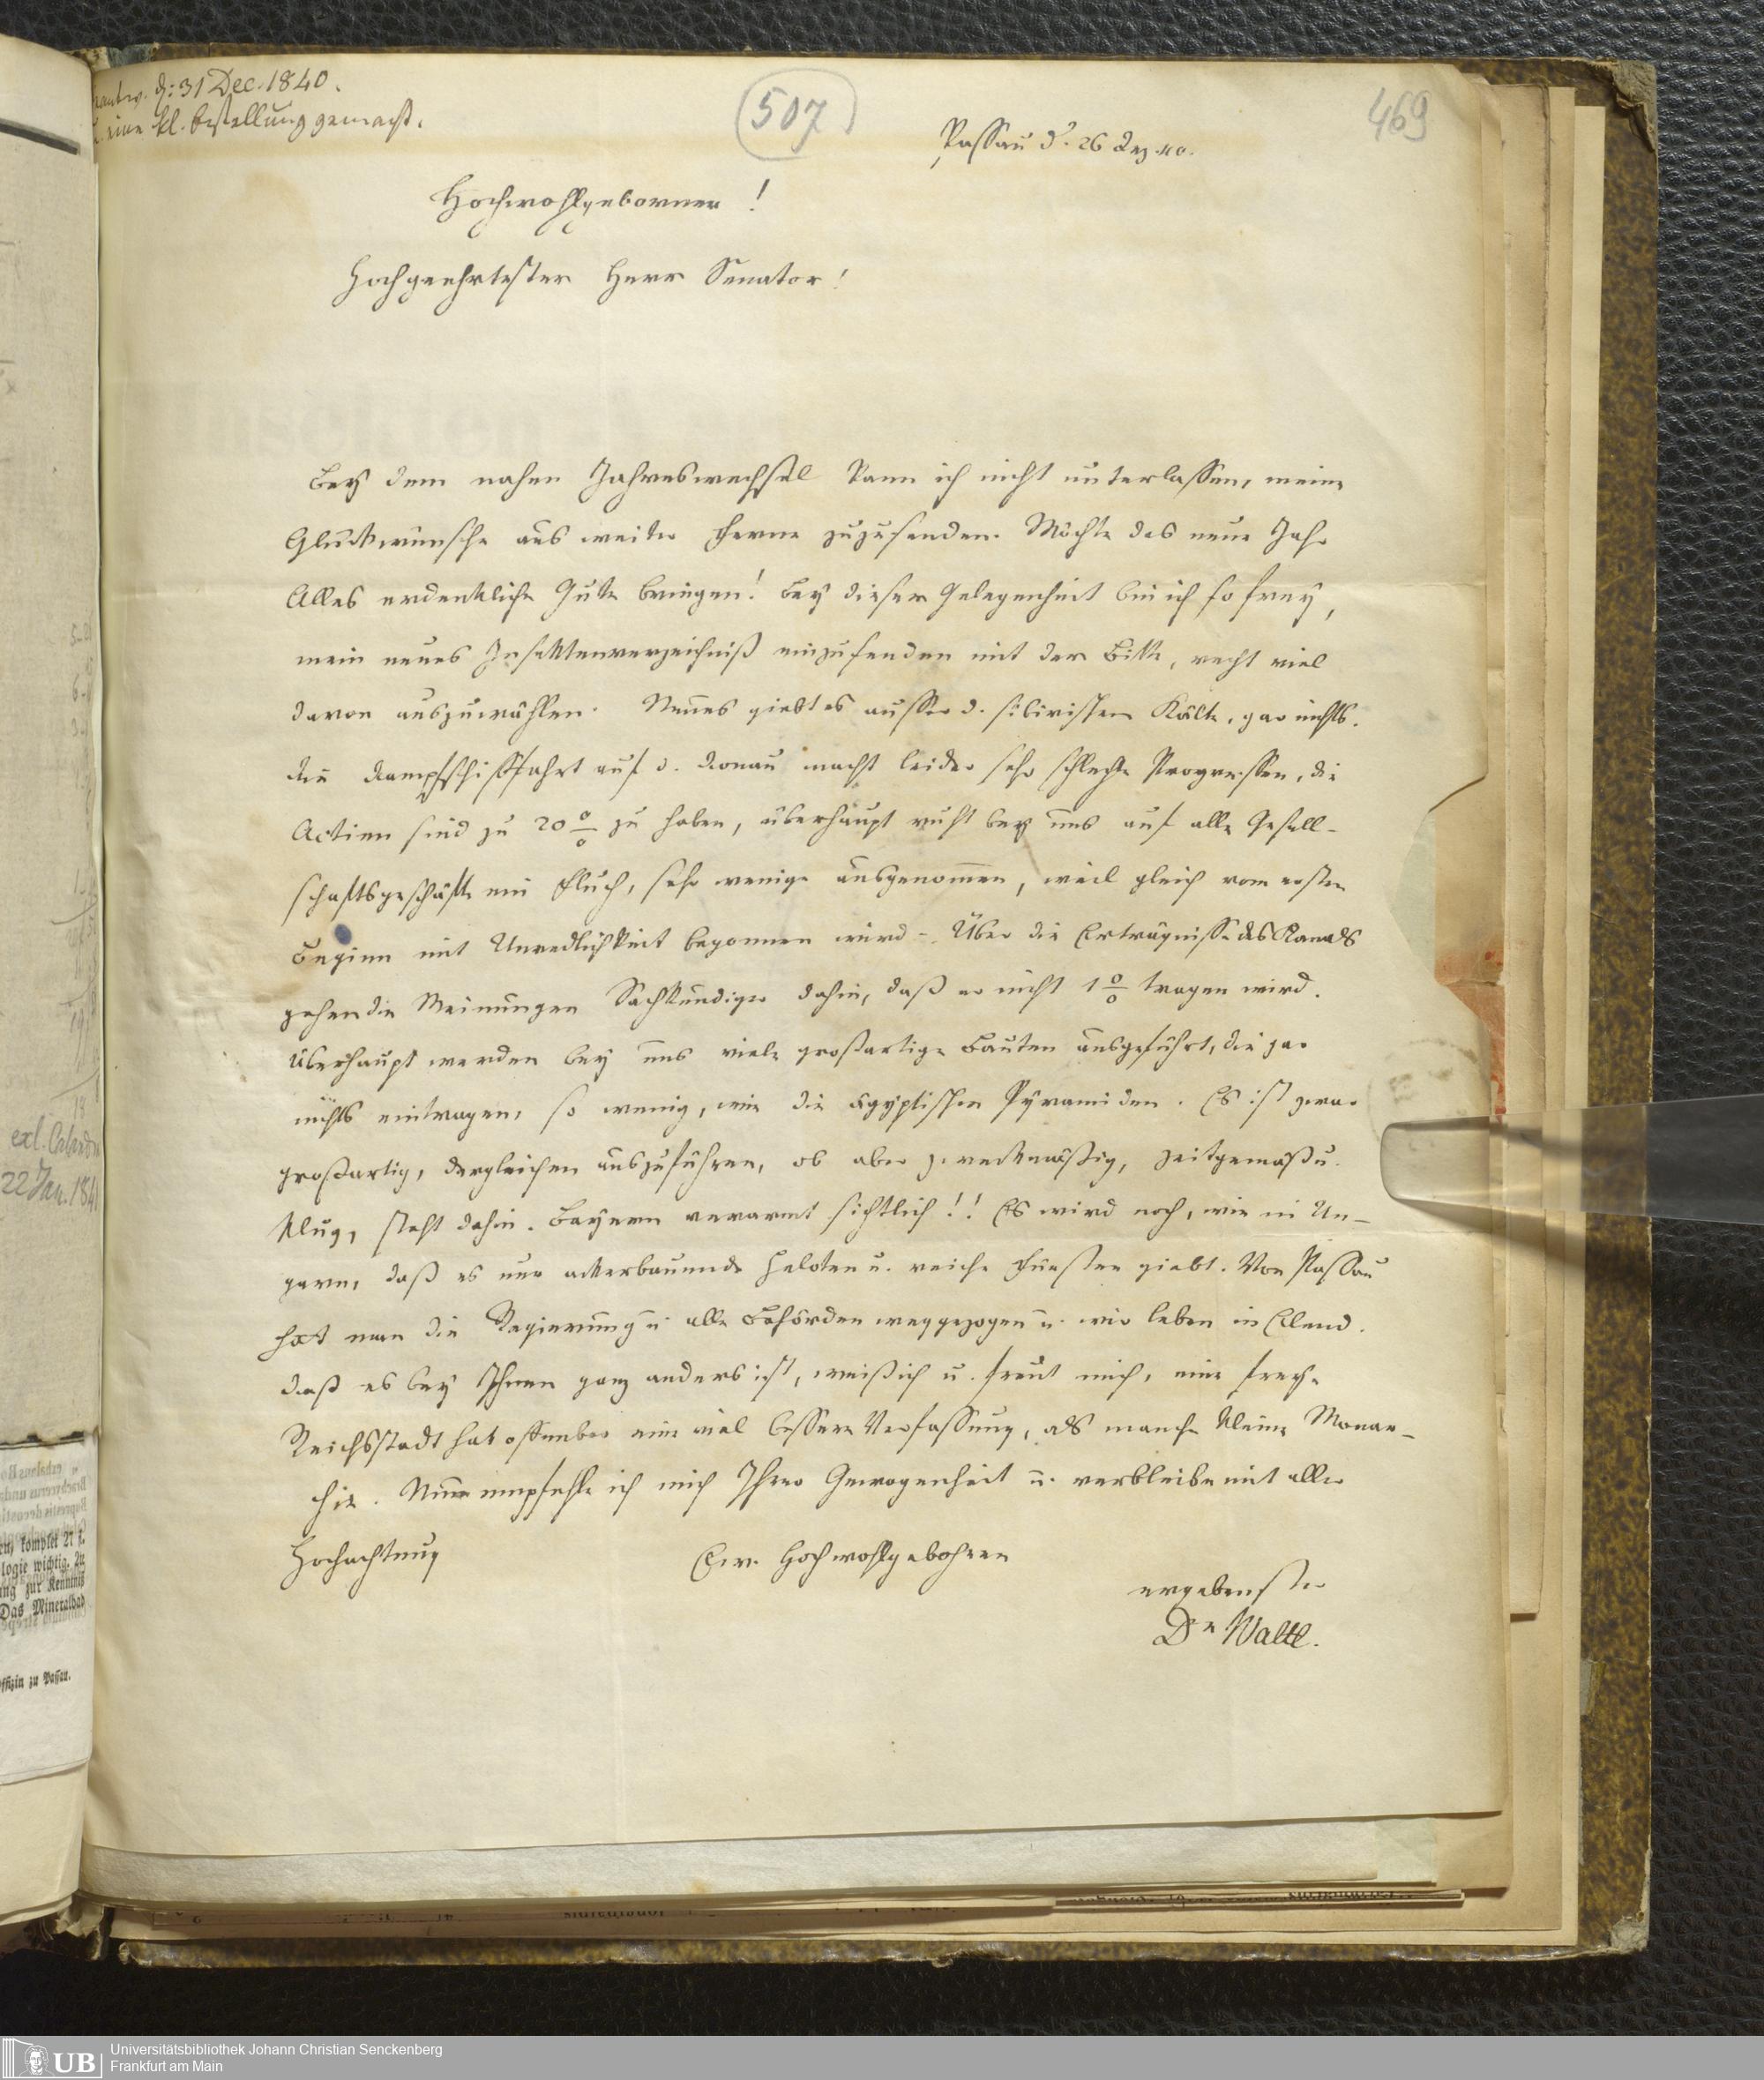 beantw. d: 31 Dec. 1840.
u. eine kl. Bestellung gemacht.
507
469
Passau d. 26 Dez. 40.
Hochwohlgeborner!
Hochgeehrtester Herr Senator!
Bey dem nahen Jahreswechsel kann ich nicht unterlassen, meine
Glückwünsche aus weiter Ferne zuzusenden. Möchte das neue Jahr
Alles erdenkliche Gute bringen! Bey dieser Gelegenheit bin ich so frey,
mein neues Insektenverzeichniß einzusenden mit der Bitte, recht viel
davon auszuwählen. Neues giebt es ausser d. sibirischen Kälte, gar nichts.
Die Dampfschifffahrt auf d. Donau macht leider sehr schlechte Progressen, die
Actien sind zu 20 % zu haben, überhaupt ruht bey uns auf alle Gesell-
schaftsgeschäfte ein Fluch, sehr wenige ausgenommen, weil gleich vom ersten
Beginn mit Unredlichkeit begonnen wird – Über die Erträgnisse des Kanals
gehen die Meinungen Sachkundiger dahin, daß er nicht 1 % tragen wird.
Überhaupt werden bey uns viele großartige Bauten ausgeführt, die gar
nichts eintragen, so wenig, wie die ägyptischen Pyramiden. Es ist zwar
großartig, dergleichen auszuführen, ob aber zweckmäßig, zeitgemäß u.
klug, steht dahin. Bayern verarmt sichtlich!! Es wird noch, wie in Un-
garn, daß es nur ackerbauende Heloten u. reiche Fürsten giebt. Von Passau
hat man die Regierung u. alle Behörden weggezogen u. wir leben in Elend.
Daß es bey Ihnen ganz anders ist, weiß ich u. freut mich, eine freye
Reichsstadt hat offenbar eine viel bessere Verfassung, als manche kleine Monar-
chie. Nun empfehle ich mich Ihrer Gewogenheit u. verbleibe mit aller
Hochachtung Euer Hochwohlgebohren
ergebenster
Dr Waltl.
22 Jan. 1841
komplet 27 f.
logie wichtig. Zu
ung zur Kenntniß
Das Mineralbad
Offizin zu Passau.
UB Universitätsbibliothek Johann Christian Senckenberg
Frankfurt am Main